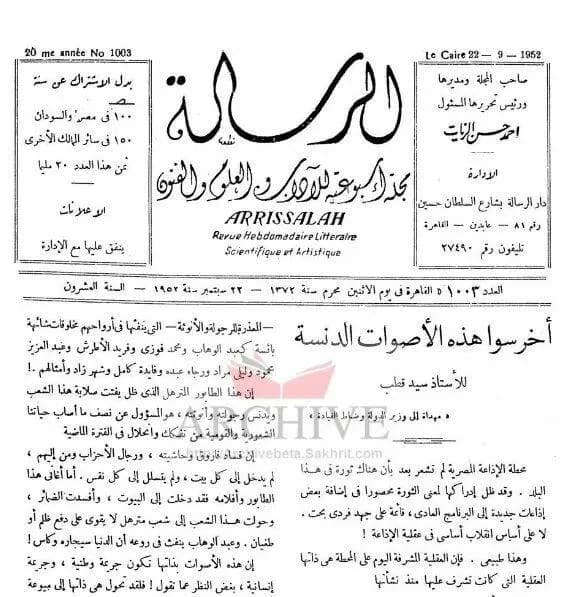 20 me année No 1003
Le Caire 22 – 9 – 1952
صاحب المجلة ومديرها
ورئيس تحريرها المسئول
احمد حسن الزيات
الإدارة
دار الرسالة بشارع السلطان حسين
رقم ٨١ – عابدين – القاهرة
تليفون رقم ٢٧٤٩٠
الرسالة
مجلة أسبوعية للآداب والعلوم والفنون
ARRISSALAH
Revue Hebdomadaire Litteraire
Scientifique et Artistique
بدل الاشتراك عن سنة
١٠٠ فى مصر والسودان
١٥٠ فى سائر الممالك الأخرى
ثمن هذا العدد ٢٠ مليا
الاعلانات
يتفق عليها مع الإدارة
العدد ١٠٠٣ « القاهرة فى يوم الاثنين محرم سنة ١٣٧٢ – ٢٢ سبتمبر سنة ١٩٥٢ – السنة العشرون
أخرسوا هذه الأصوات الدنسة
للأستاذ سيد قطب
« مهداة إلى وزير الدولة وضباط القيادة »
محطة الإذاعة المصرية لم تشعر بعد بأن هناك ثورة فى هذا
البلد . وقد ظل إدراكها لمعنى الثورة محصورا فى إضافة بعض
إذاعات جديدة إلى البرنامج العادى ، قائمة على جهد فردى بحت .
لا على أساس انقلاب أساسى فى عقلية الإذاعة !
وهذا طبيعى . فإن العقلية المشرفة اليوم على المحطة هى ذاتها
العقلية التى كانت تشرف عليها منذ نشأتها
المعذرة للرجولة والأنوثة – التى ينفثها فى أرواحهم مخلوقات شائهة
بائسة كعبد الوهاب ومحمد فوزى وفريد الأطرش وعبد العزيز
محمود وليلى مراد ورجاء عبده وفايدة كامل وشهر زاد وأمثالهم . !
إن هذا الطابور المترهل الذى ظل يفتت صلابة هذا الشعب
ويدنس رجولته وأنوثته ، هو المسؤول عن نصف ما أصاب حياتنا
الشعورية والقومية من تفكك وانحلال فى الفترة الماضية
إن فساد فاروق وحاشيته ، ورجال الأحزاب ومن إليهم ،
لم يدخل إلى كل بيت ، ولم يتسلل إلى كل نفس . أما أغانى هذا
الطابور وأفلامه فقد دخلت إلى البيوت ، وأفسدت الضمائر ،
وحولت هذا الشعب إلى شعب مترهل لا يقوى على دفع ظلم أو
طغيان . وعبد الوهاب ينفث فى روعه أن الدنيا سيجاره وكاس !
إن هذه الأصوات بذاتها تكون جريمة وطنية ، وجريمة
إنسانية ، بغض النظر عما تقول ! فلقد تحول هى ذاتها إلى ميوعة
ARCHIVE
http://archivebeta.Sakhrit.com